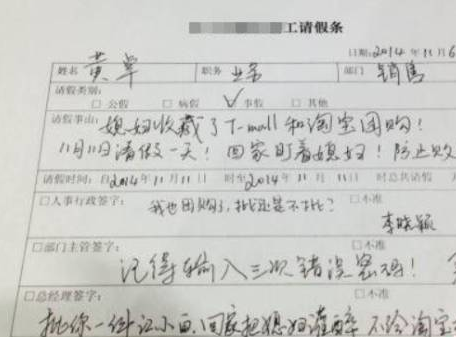 工请假条
日期:2014年11月6
姓名 黄 职务 业务 部门 销售
请假类别:
□公假 □病假 ✓事假 □其他
请假事由: 媳妇收藏了T-mall和淘宝团购!
11月11日请假一天! 回家盯着媳妇! 防止败
请假时间: 自2014年11月11日 时至2014年11月11日 时总共请假
□人事行政签字: □不准
我也团购了,批还是不批?
李晓颖
□部门主管签字: □不准
记得输入三次错误密码!
□总经理签字: □不准
批你一件 回家把媳妇灌醉 不给淘宝